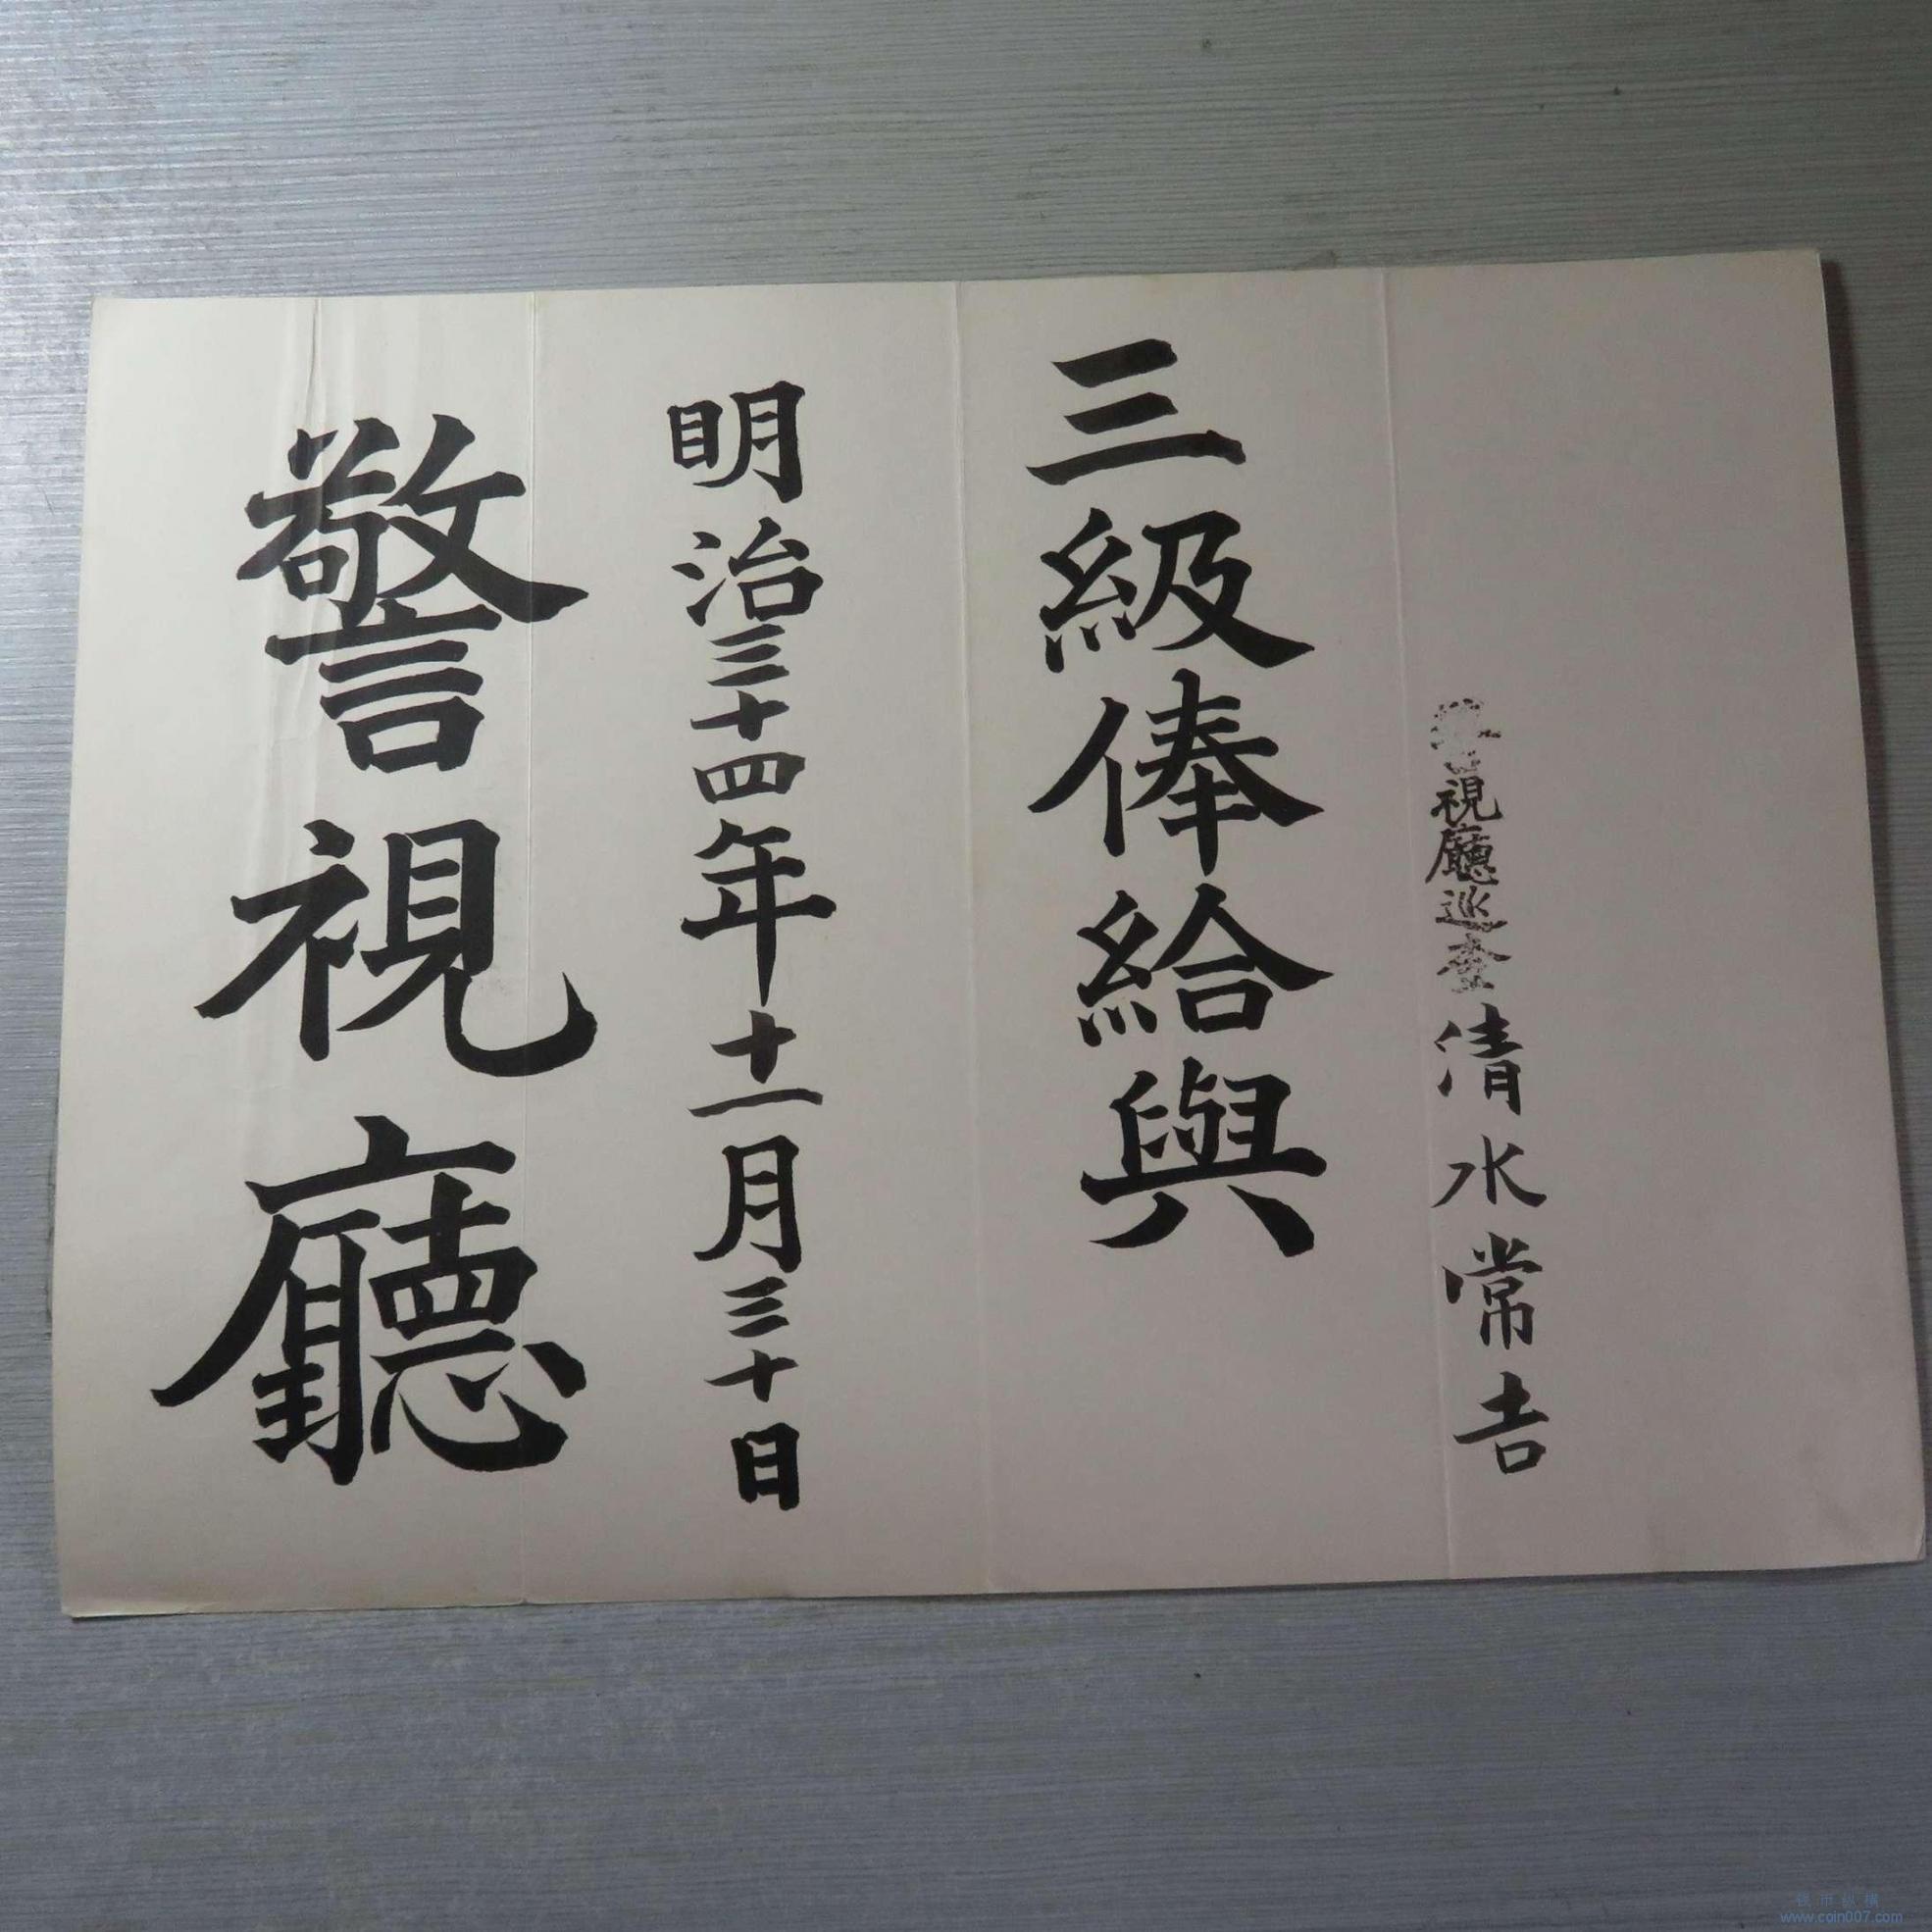 警視廳巡査清水常吉
三級俸給與
明治三十四年十一月三十日
警視廳
钱币纵横
www.coin007.com